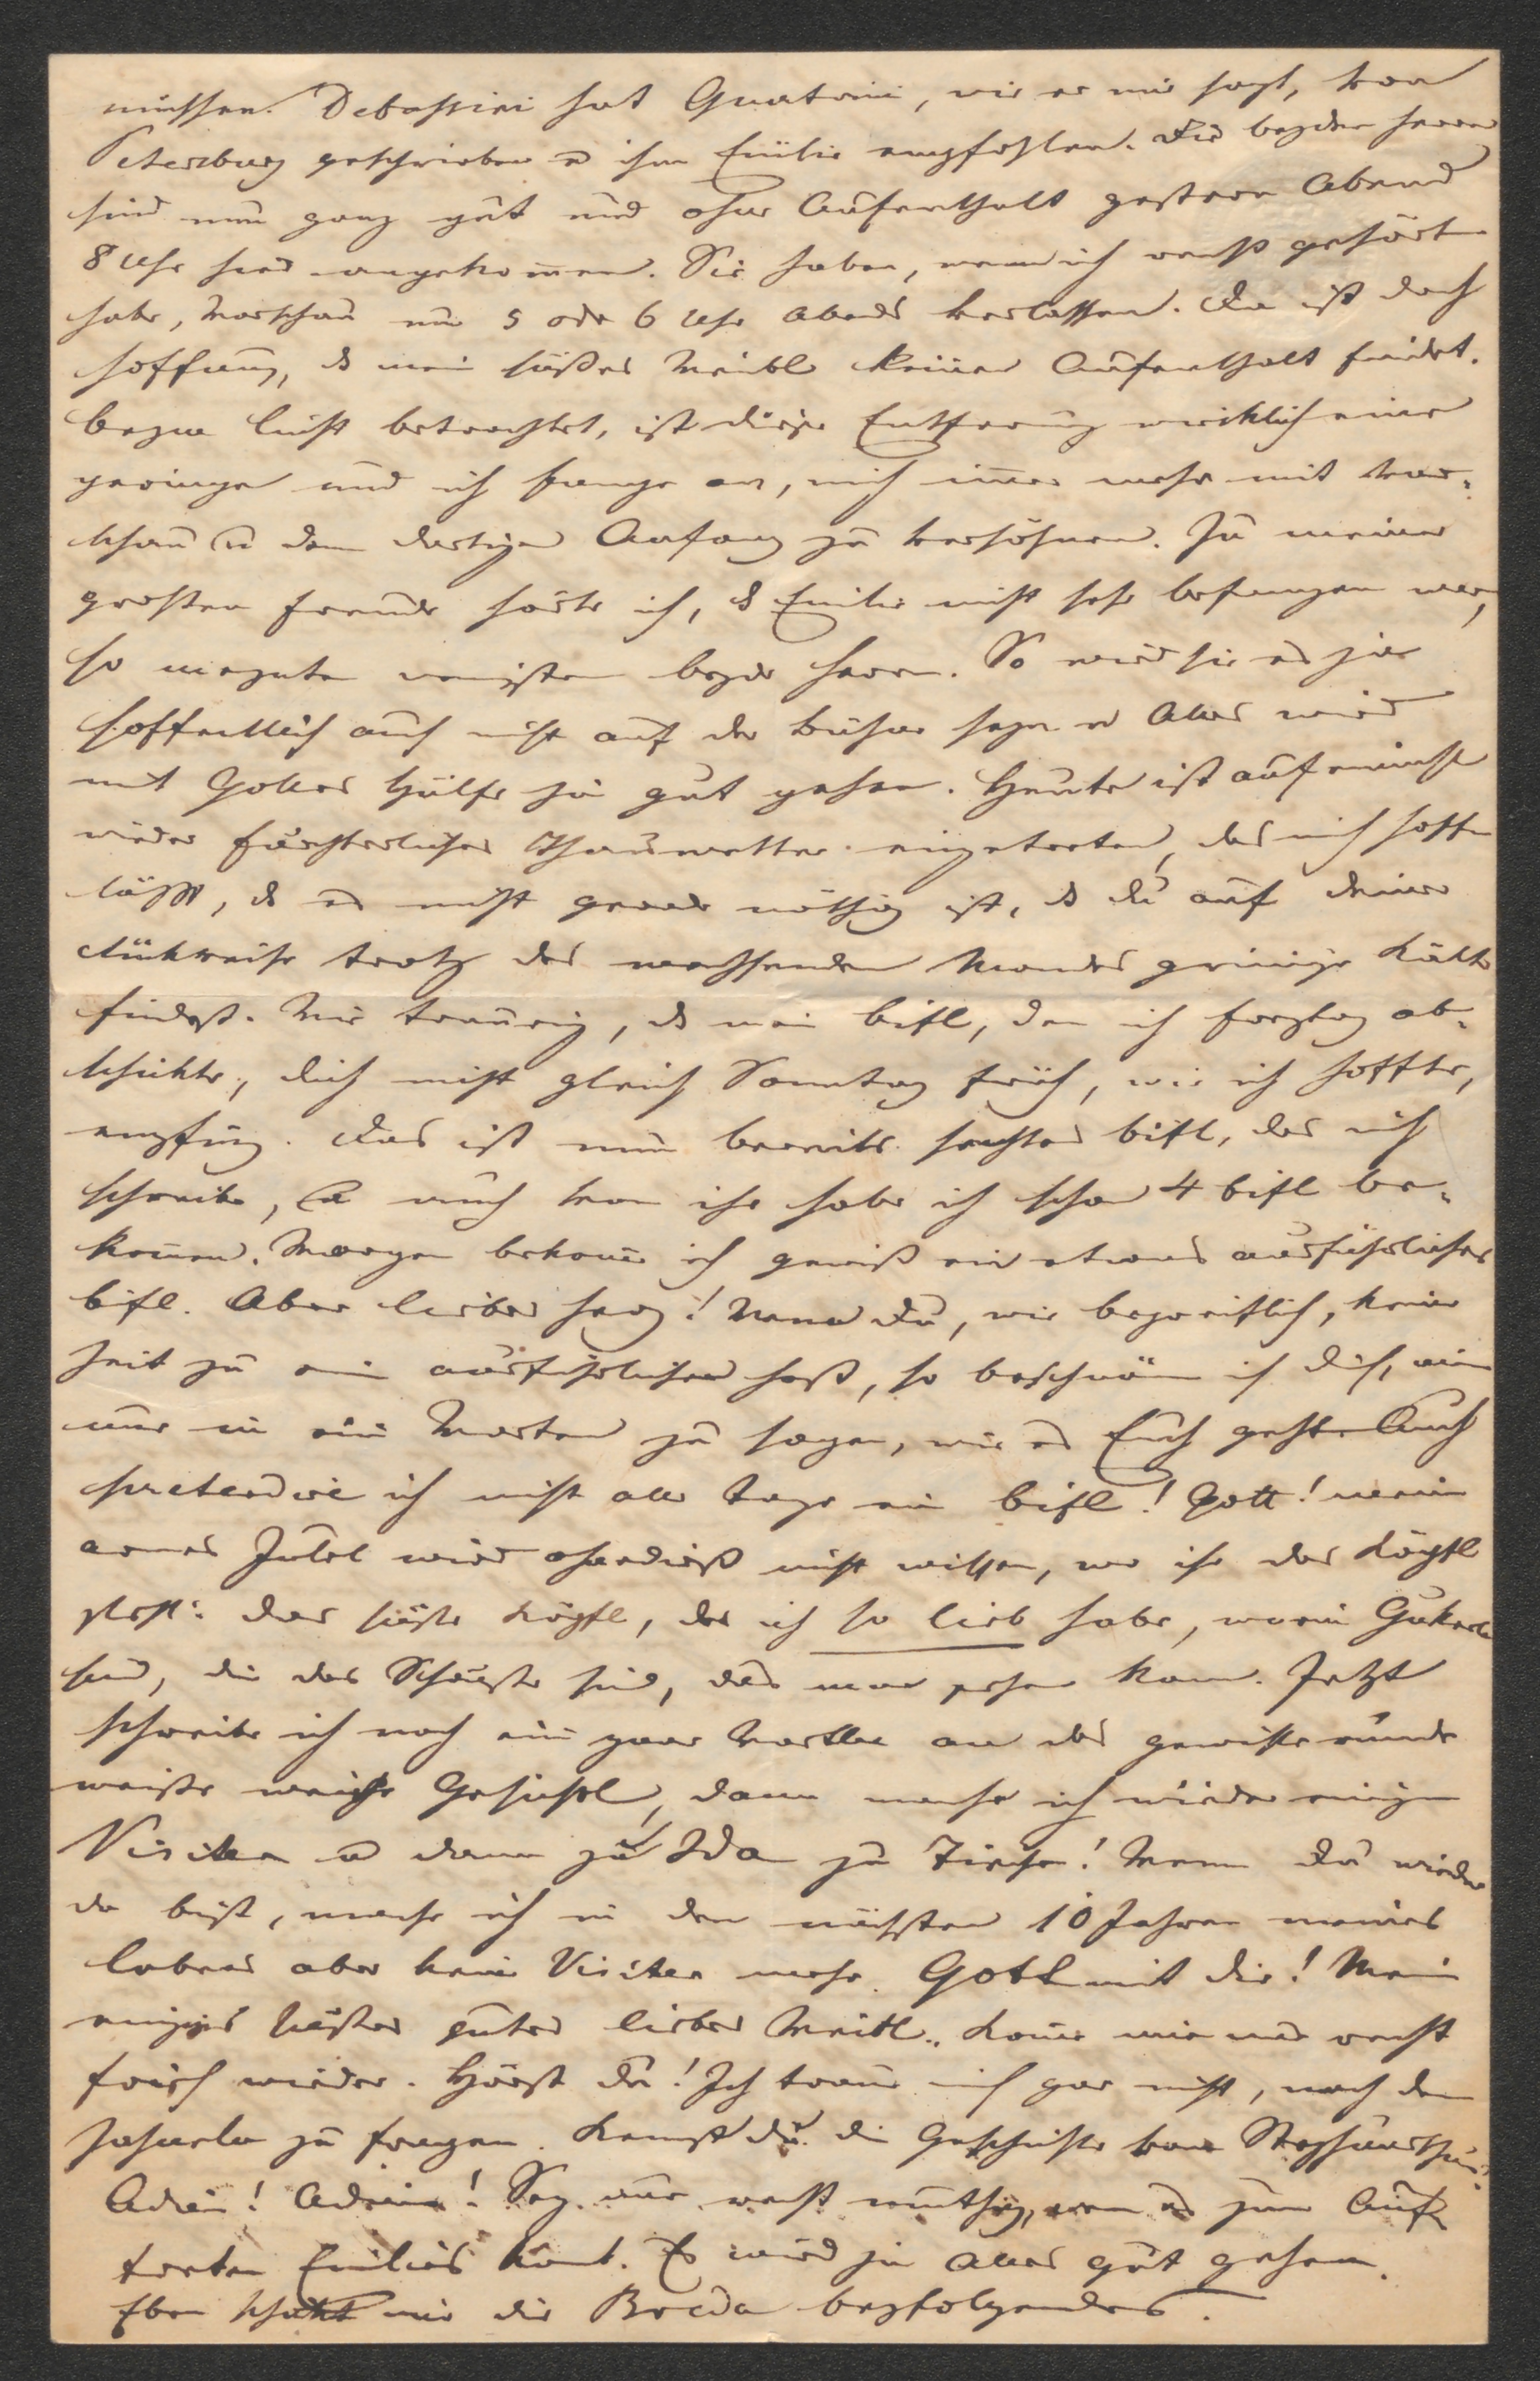 müssen. Debassini hat Quatrini, wie er mir sagt, von
Petersburg geschrieben u ihm Emilie empfohlen. Die beyden Herrn
sind nun ganz gut und ohne Aufenthalt gestern Abend
8 Uhr hier angekom̄en. Sie haben, wenn ich recht gehört
habe, Warschau um 5 oder 6 Uhr Abends verlassen. Da ist doch
Hoffnung, dß mein süßes Weibl keinen Aufenthalt findet.
Bezm Licht betrachtet, ist diese Entfernung wirklich eine
geringe und ich fange an, mich im̄er mehr mit War-
schau u dem dortigen Anfang zu versöhnen. Zu meiner
großen Freude hörte ich, dß Emilie nicht sehr befangen war,
so meynten wenigstens beyde Herrn. So wird sie es ja
hoffentlich auch nicht auf der Bühne seyn u Alles wird
mit Gottes Hülfe ja gut gehen. Heute ist auf einmahl
wieder fürchterliches Thauwetter eingetreten, das mich hoffen
läßt, dß es nicht gerade nöthig ist, dß du auf deiner
Rückreise trotz des wachsenden Mondes grimmige Kälte
findest. Nur traurig, dß mein bifl, den ich freytag ab-
schickte, dich nicht gleich Sonntag früh, wie ich hoffte,
empfing. Das ist nun bereits sechstes bifl, das ich
schreibe, u auch von ihr habe ich schon 4 bifl be-
kom̄en. Morgen bekom̄e ich gewiß ein etwas ausführliches
bifl. Aber liebes Herz! Wenn Du, wie begreiflich, keine
Zeit zu ein ausführlichen hast, so beschwöre ich dich, mir
nur in ein Worten zu sagen, wie es Euch geht. Auch
pretendire ich nicht alle Tage ein bifl! Gott! mein
armes Jutel wird ohnedieß nicht wissen, wo ihr das Köpfl
steht: das süße Köpfl, das ich so lieb habe, worin Gukerln
sind, die das Schönste sind, das man sehen kann. Jetzt
schreibe ich noch ein paar Wortln an das gewisse runde
weiße weiche Gesichtl, dann mache ich wieder einige
Visiten u dann zu Ida zu Tische! Wenn du wieder
da bist, mache ich in den nächsten 10 Jahren meines
Lebens aber keine Visiten mehr. Gott mit dir! Mein
einziges süßes gutes liebes Weibl. Kom̄e mir nur recht
frisch wieder. Hörst du! Ich traue mich gar nicht, nach den
zu fragen. Kennst du die Geschichte vom
Adieu! Adieu! Sey nur recht muthig, wenn es zum Auf-
treten Emiliens kom̄t. Es wird ja alles gut gehen.
Eben schickt mir die Breda beyfolgendes.